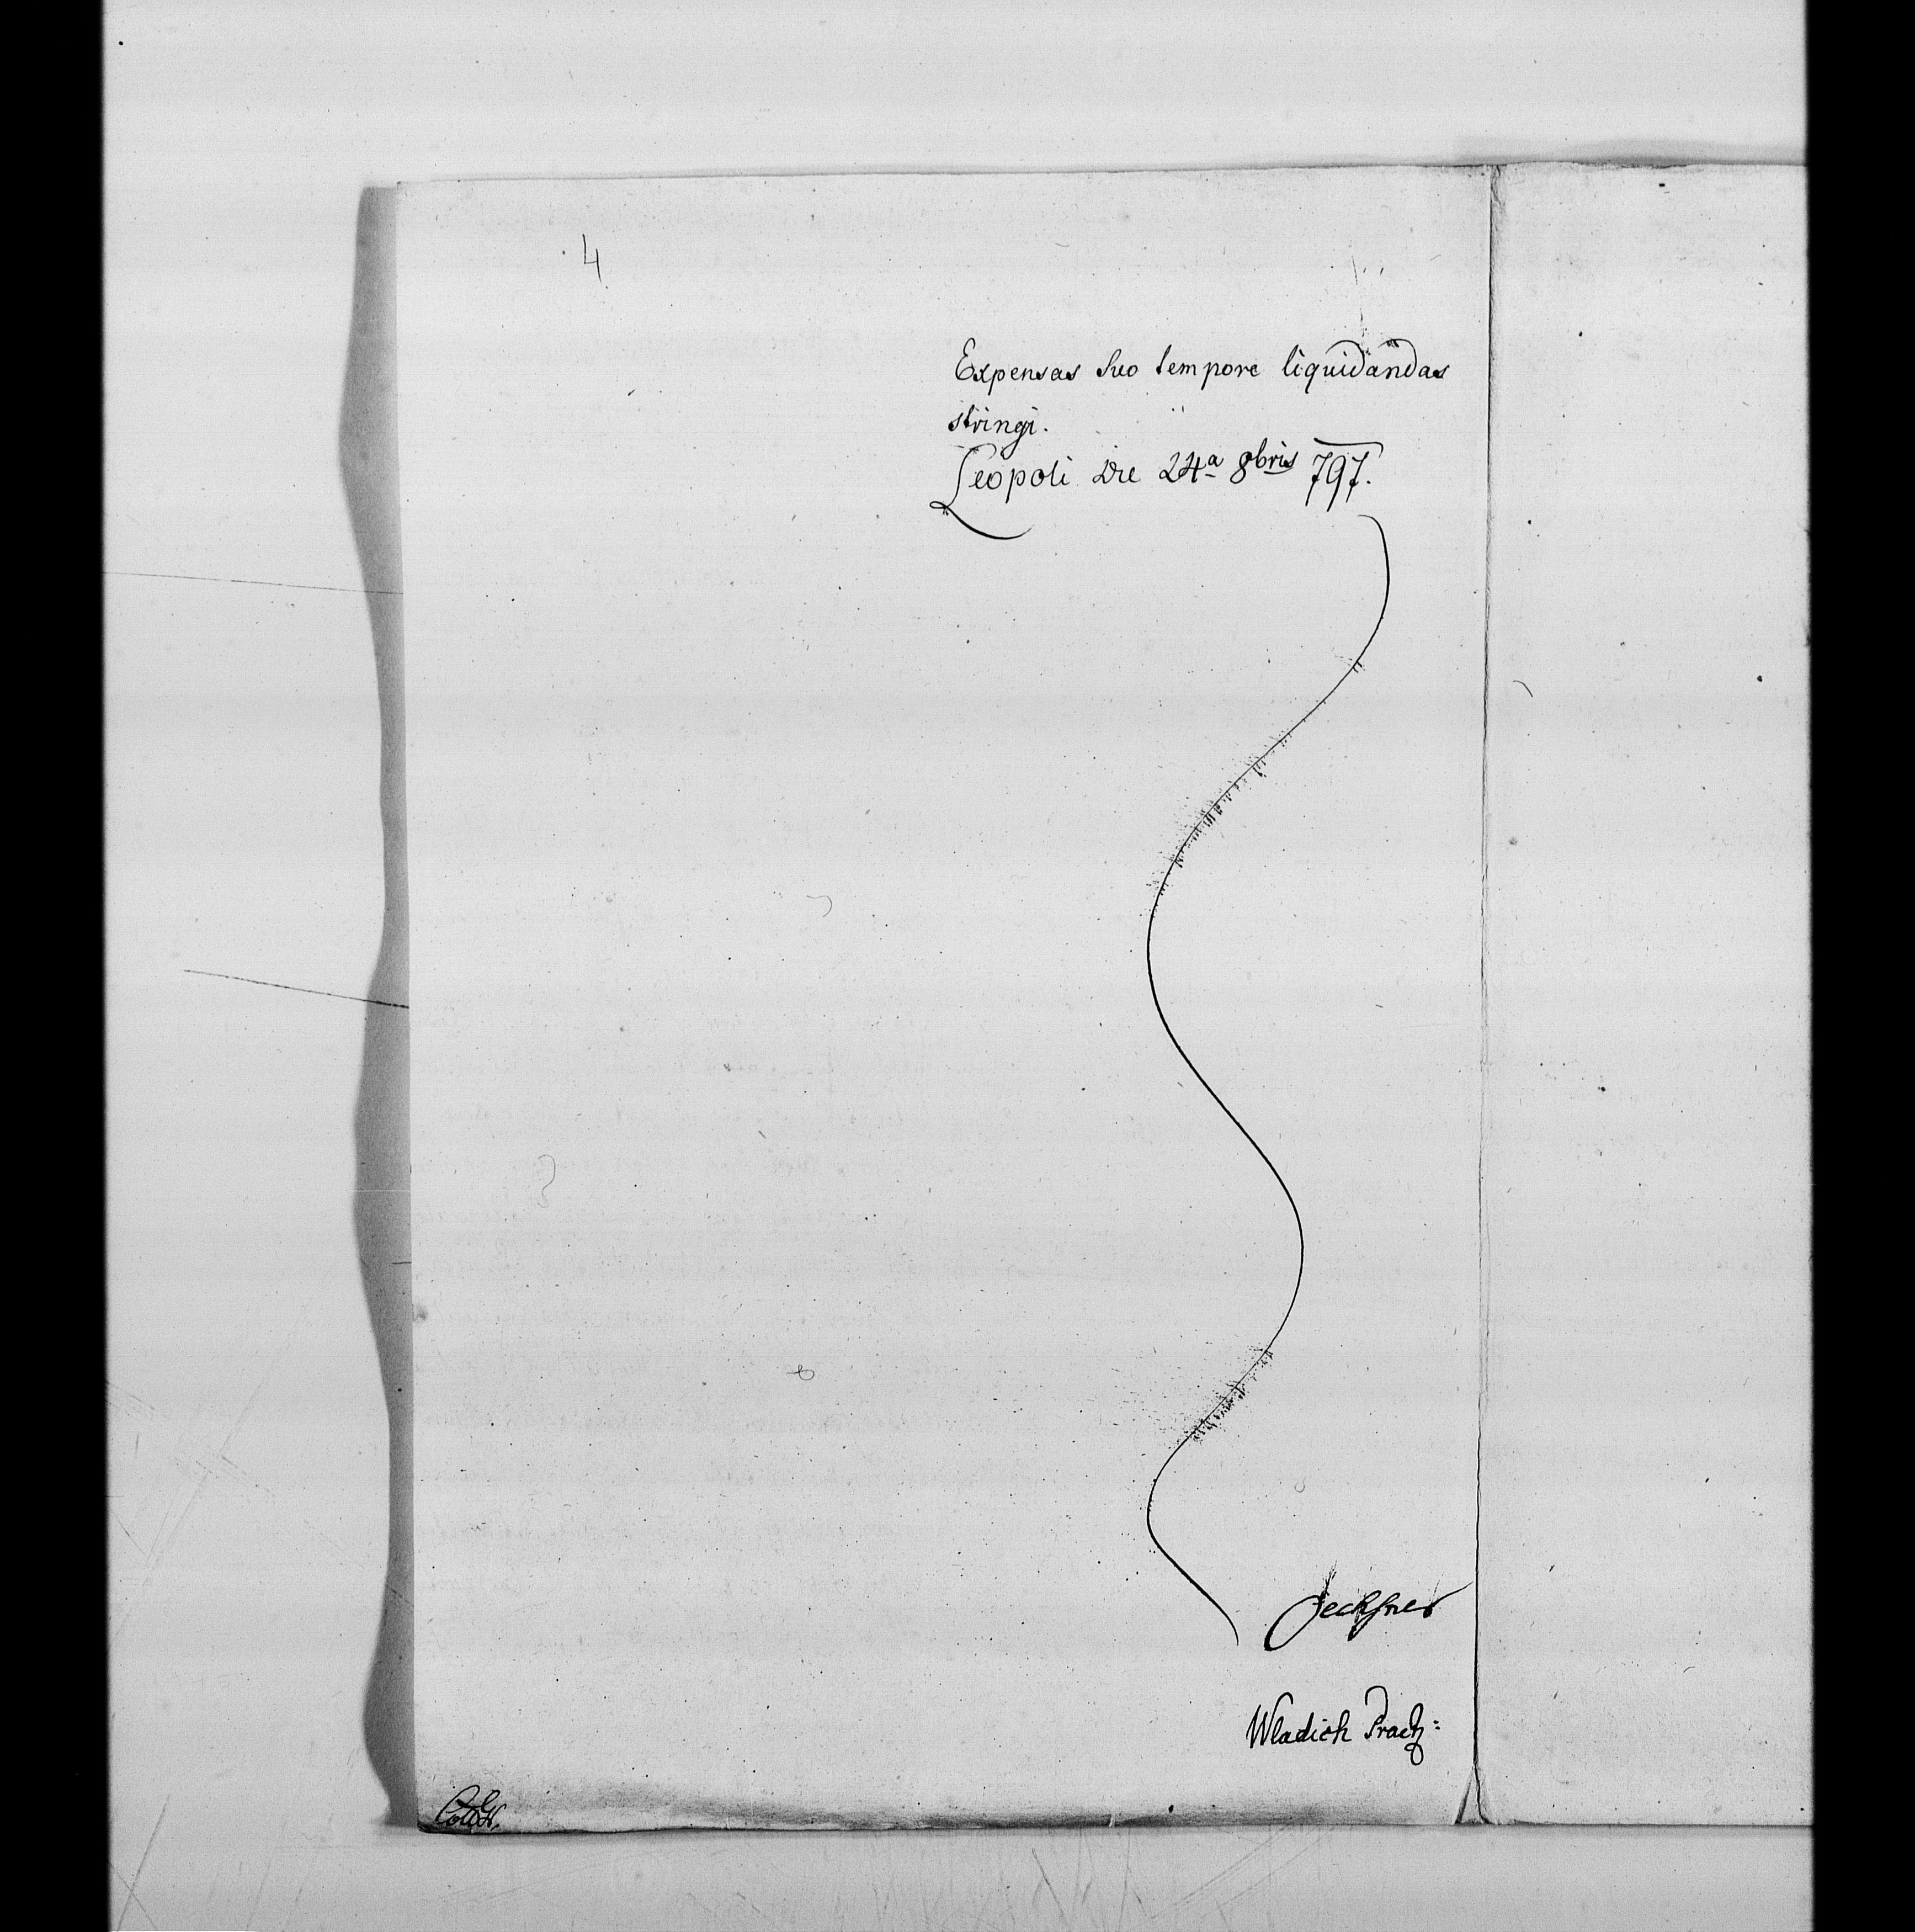 4
Expensas suo tempore liquidandas
stringi.
Leopoli die 24ª 8bris 797.
Wladich